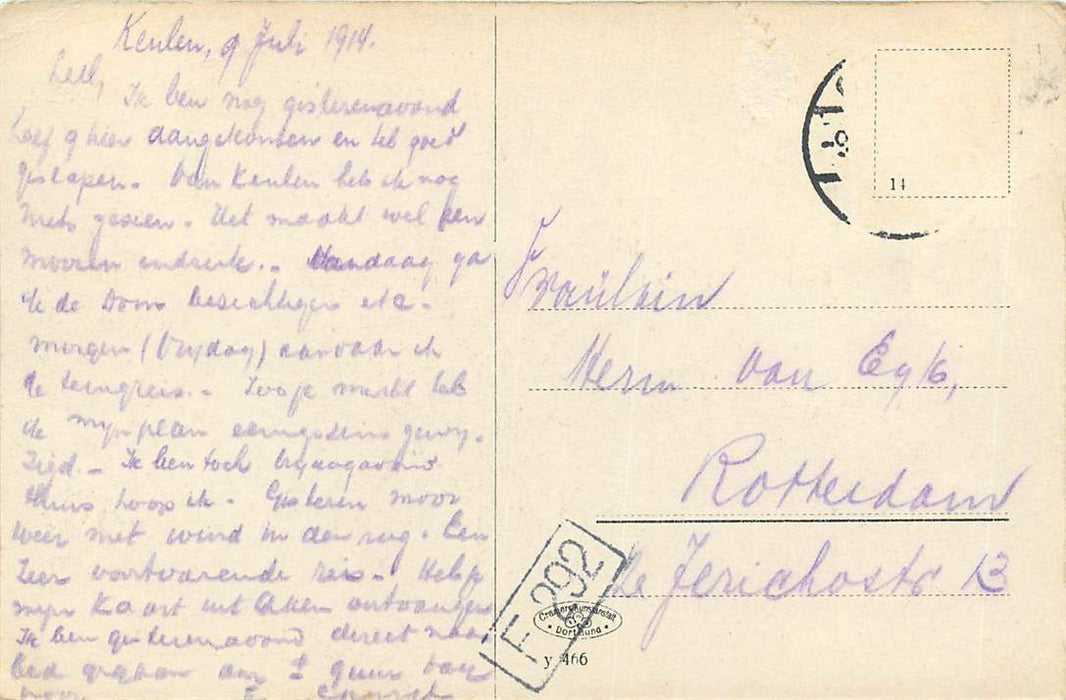 Keulen, 9 Juli 1914.
Ik ben nog gisterenavond
half 9 hier aangekomen en heb goed
geslapen. Van Keulen heb ik nog
niets gezien. Het maakt wel een
mooien indruk. - Vandaag ga
ik de Dom bezichtigen etc.
morgen (Vrydag) aanvaar ik
de terugreis. - Zooje merkt heb
ik myn plan eenigszins gewy-
zigd. - Ik ben toch
thuis hoop ik. Gisteren mooi
weer met wind in den rug. Een
zeer voortvarende reis. - Heb je
myn kaart uit Aken ontvangen
Ik ben gisterenavond direct naar
bed gegaan om
Fraülein
Herm van Eyk,
Rotterdam
2e Jerichostr 13
14
F 292
Cramers Kunstanstalt
Dortmund
y 466